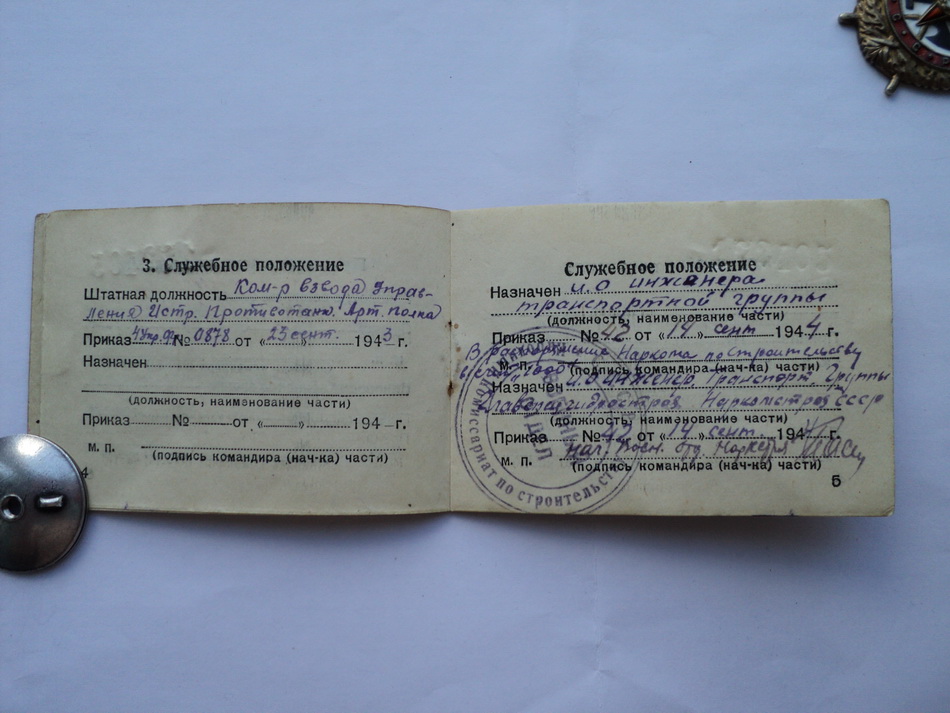 3. Служебное положение
Штатная должность Ком-р взвода Управ-
ления Истр. Противотанк. Арт. полка
Приказ 4 Укр. фр. № 0878 от « 23 сент. 1943 г.
Назначен
(должность, наименование части)
Приказ № от « » 194 г.
м. п.
(подпись командира (нач-ка) части)
4
Служебное положение
Назначен и.о инженера
транспортной группы
(должность, наименование части)
Приказ № 42 от « 14 » сент 1944 г.
В распоряжение Наркома по строительству
м. п. (подпись командира (нач-ка) части)
Назначен и.о инженер. Транспорт Группы
Главвоенгидростроя Наркомстроя СССР
(должность, наименование части)
Приказ № 42 от « 14 » сент 194
м. п. Нач. Воен. отд. Наркома
(подпись командира (нач-ка) части)
5
комиссариат по строительст